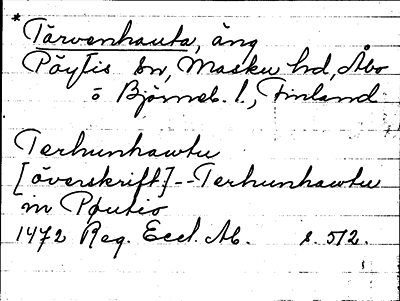 * Tärvenhauta, äng
Pöytis sn, Masku hd, Åbo
o Björneb. l., Finland
Terhunhawtu
[överskrift] -- Terhunhawtu
m Pøutio
1472 Reg. Eccl. Ab. s. 512.